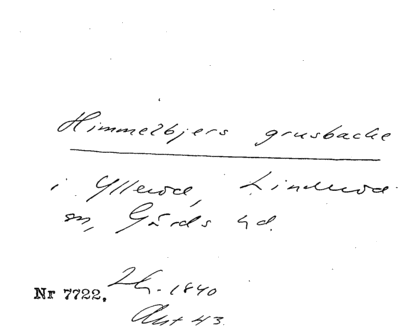 Himmelsbjers grusbacke
i Ylleröd, Linderöd
sn, Gärds hd.
Nr 7722. 1840
Akt 43.